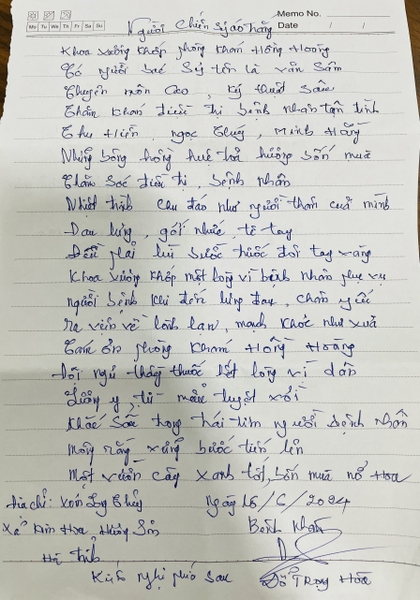 Memo No.
Mo Tu We Th Fr Sa Su Date / /
Người Chiến Sỹ áo trắng
Khoa xương khớp phòng khám Hồng Hoàng
Có người bác Sỹ tên là văn Sâm
Chuyên môn Cao, kỹ thuật sâu
Thăm Khám điều trị bệnh nhân tận tình
Thu Hiền, ngọc Thuý, Minh Hằng
Những bông hồng huệ toả hương bốn mùa
Chăm Sóc điều trị, bệnh nhân
Nhiệt tình Chu đáo như người thân của mình
Đau lưng, gối nhức, tê tay
Đều phải lùi bước trước đôi tay vàng
Khoa xương Khớp một lòng vì bệnh nhân phục vụ
người bệnh Khi đến lưng đau, chân yếu
ra viện về lành lặn, mạnh Khoẻ như xưa
Cám ơn phòng Khám Hồng Hoàng
Đội ngũ thầy thuốc hết lòng vì dân
Lương y, từ mẫu tuyệt vời
Khắc sâu trong trái tim người bệnh nhân
Mong rằng vững bước tiến lên
Một vườn cây xanh tốt, bốn mùa nở Hoa
Địa chỉ: xóm Long Thuỷ ngày 16/6/2024
xã Kim Hoa, Hương Sơn Bệnh Nhân
Hà Tĩnh
Kính nghị phó sau Đỗ Trọng Hoà